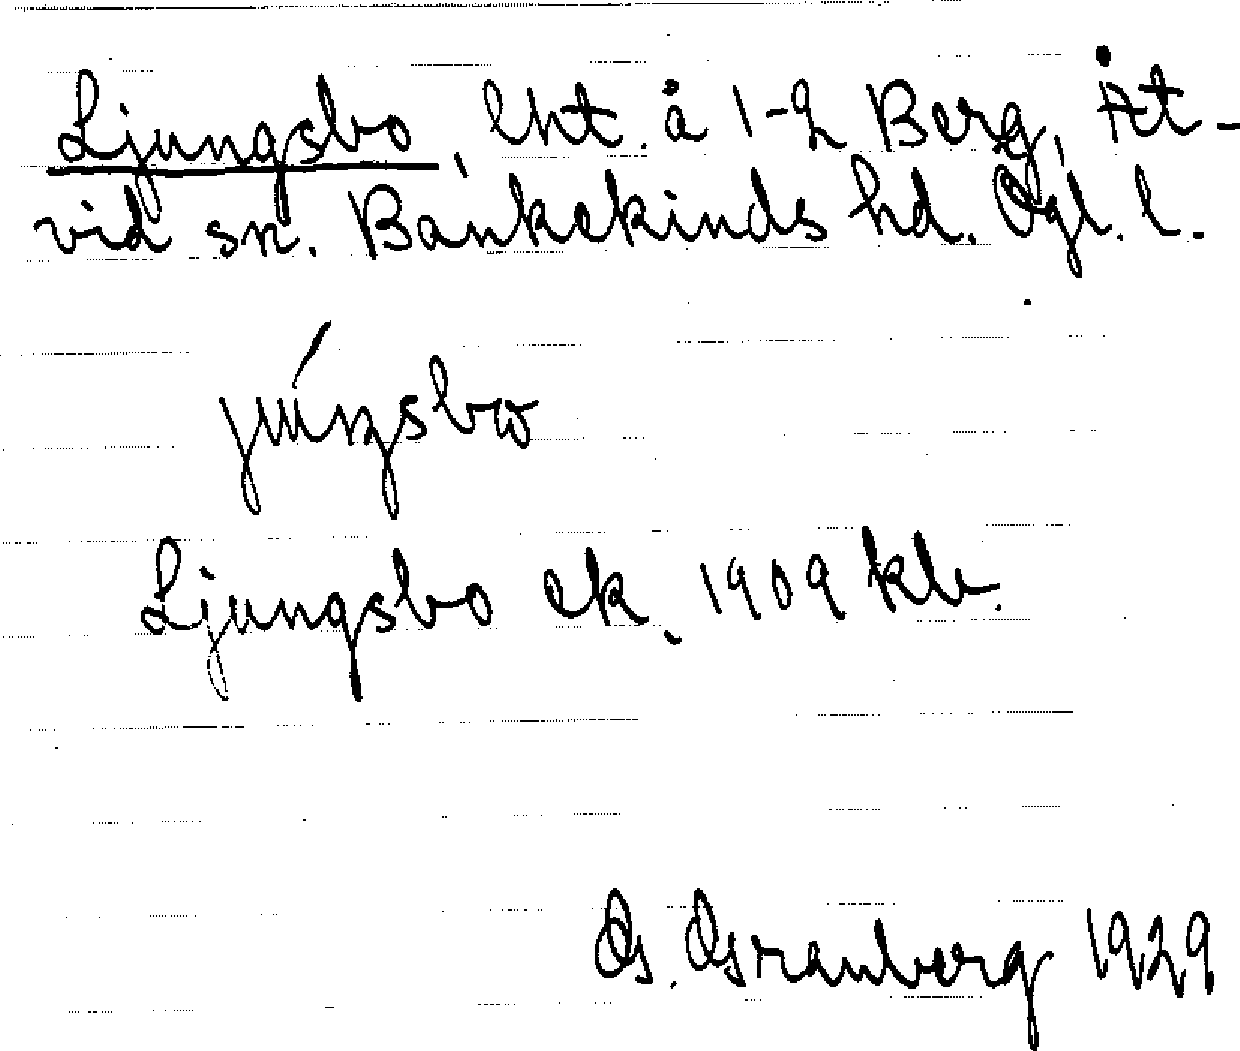 Ljungsbo, lht. å 1-2 Berg, Åt-
vid sn. Bankekinds hd. Ögl. l.
Ljungsbo ek. 1909 klr.
G. Granberg 1929